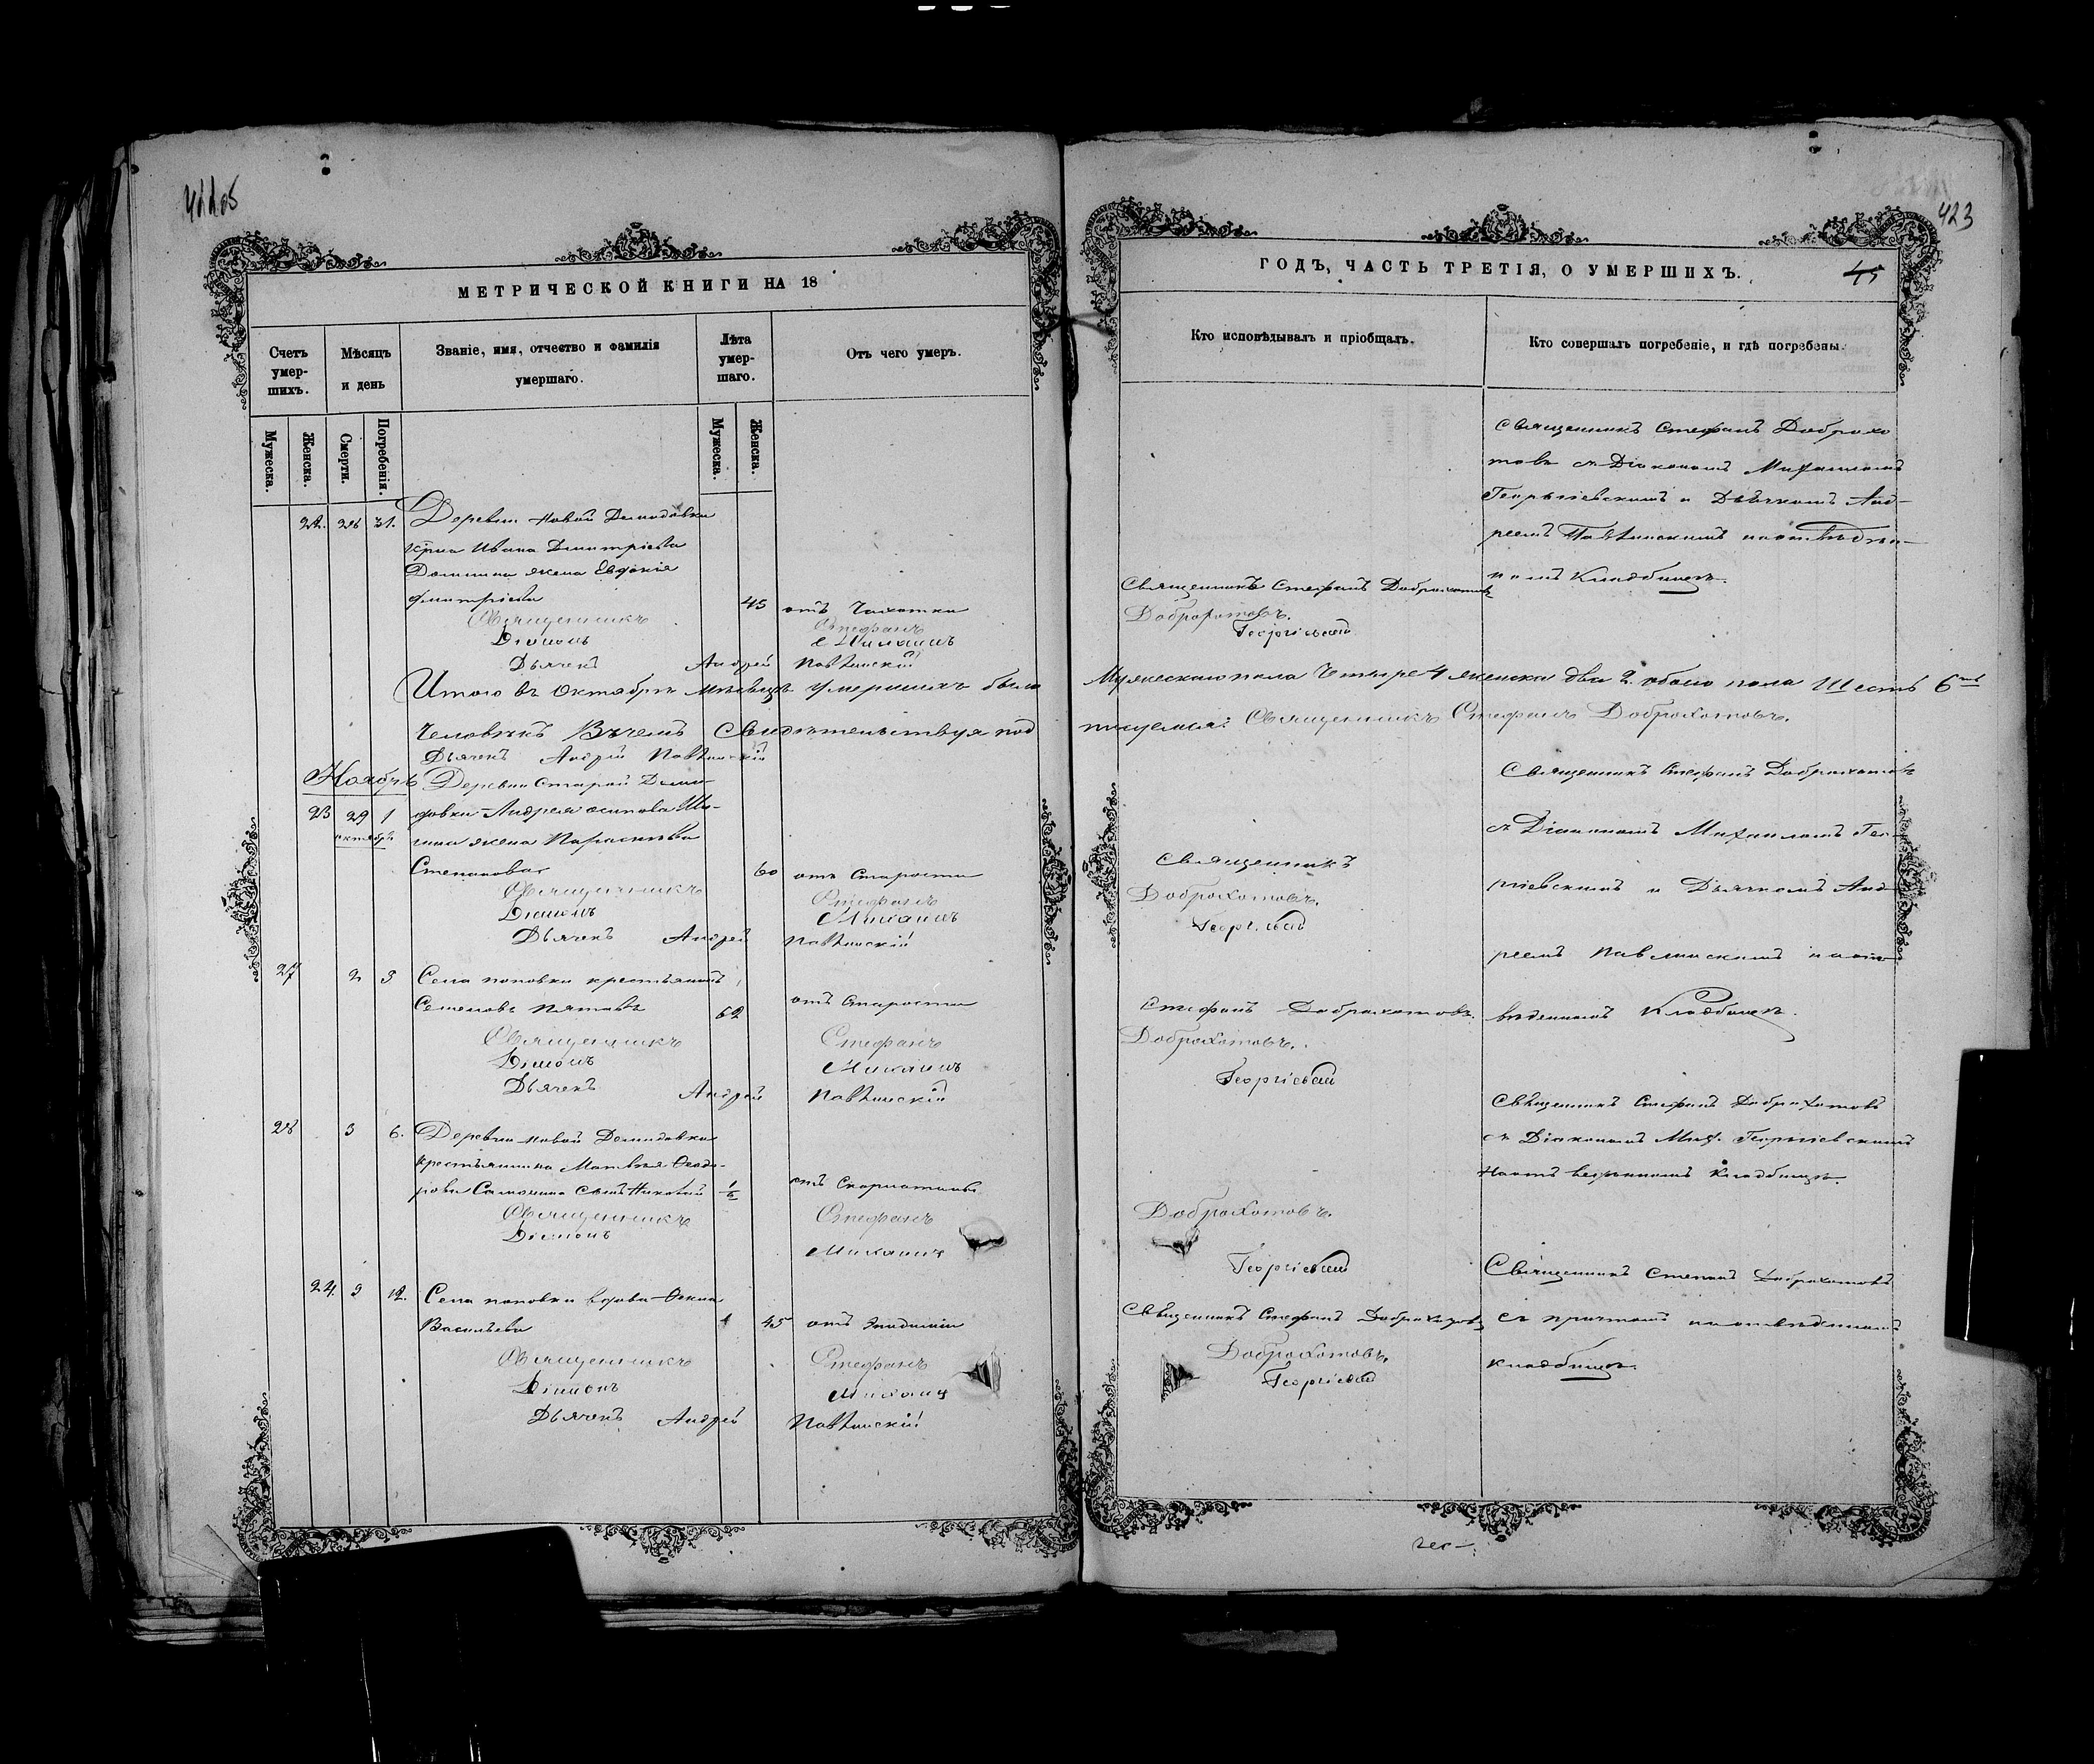 МЕТРИЧЕСКОЙ КНИГИ НА 18
Счетъ умер-шихъ.
Мѣсяцъ и день
Званіе, имя, отчество и фамилія умершаго.
Лѣта умер-шаго.
Отъ чего умеръ.
Мужеска.
Женска.
Смерти.
Погребенія.
Мужеска.
Женска.
22. 26 31. Деревни Новой Демидовки
Ивана Димитріева
жена Евдокія
Димитріева 45 отъ Чахотки
Священникъ Стефанъ
Діаконъ Михаилъ
Дьячекъ Андрей Павлинскій
Итого въ Октябрѣ Мѣсяцѣ умершихъ было
Человѣкъ Въ чемъ Свидѣтельствуя под
Дьячекъ Андрей Павлинскій
Ноябрь Деревни Старой Деми-
23 29 1 довки Андрея Осипова
октября жена Параскева
Степанова 60 отъ Старости
Священникъ Стефанъ
Діаконъ Михаилъ
Дьячекъ Андрей Павлинскій
27 2 3 Села поповки крестьянинъ
Семеновъ 62 отъ Старости
Священникъ Стефанъ
Діаконъ Михаилъ
Дьячекъ Андрей Павлинскій
28 3 6. Деревни новой Демидовки
крестьянина Матвѣя Ѳеодо-
рова сынъ Николай отъ Скарлатины
Священникъ Стефанъ
Діаконъ Михаилъ
24. 9 12. Села поповки вдова
Васильева 45 отъ
Священникъ Стефанъ
Діаконъ Михаилъ
Дьячекъ Андрей Павлинскій
423
ГОДЪ, ЧАСТЬ ТРЕТІЯ, О УМЕРШИХЪ.
45
Кто исповѣдывалъ и пріобщалъ.
Кто совершалъ погребеніе, и гдѣ погребены.
Священникъ Стефанъ Доброхо
товъ съ Діакономъ Михаиломъ
Георгіевскимъ и Дьячкомъ Анд-
реемъ Павлинскимъ на отведен-
номъ Кладбищѣ.
Священникъ Стефанъ Доброхотовъ
Доброхотовъ.
Георгіевскій
Мужескаго пола Четыре 4 женска два 2. обоего пола Шесть 6
писуемся: Священникъ Стефанъ Доброхотовъ.
Священникъ Стефанъ Доброхотовъ
съ Діакономъ Михаиломъ Гео-
ргіевскимъ и Дьячкомъ Анд-
реемъ Павлинскимъ на от-
веденномъ Кладбищѣ.
Священникъ
Доброхотовъ.
Георгіевскій
Стефанъ Доброхотовъ.
Доброхотовъ.
Георгіевскій
Священникъ Стефанъ Доброхотовъ
съ Діакономъ Мих. Георгіевскимъ
На отведенномъ Кладбищѣ.
Доброхотовъ.
Георгіевскій
Священникъ Стефанъ Доброхотовъ
съ причтомъ на отведенномъ
кладбищѣ.
Священникъ Стефанъ Доброхотовъ
Доброхотовъ.
Георгіевскій